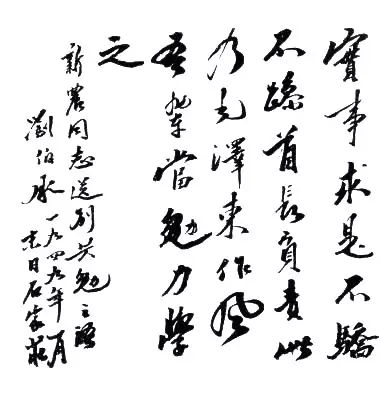 實事求是不驕
不躁首長負責此
乃毛澤東作風
吾輩當勉力學
之
新農同志送别共勉之語
劉伯承一九四九年一月
末日石家莊